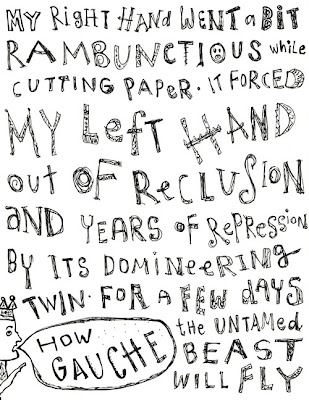 MY RIGHT HAND WENT a BIT
RAMBUNCTIOUS while
CUTTING PAPER. IT FORCED
MY Left HAND
out OF ReCLUSION
aND YEARS OF RePRESSION
BY ITS DOMINEERING
TWIN. FOR A FEW DAYS
the UNTAMED
BEAST
WILL FLY
HOW
GAUCHE